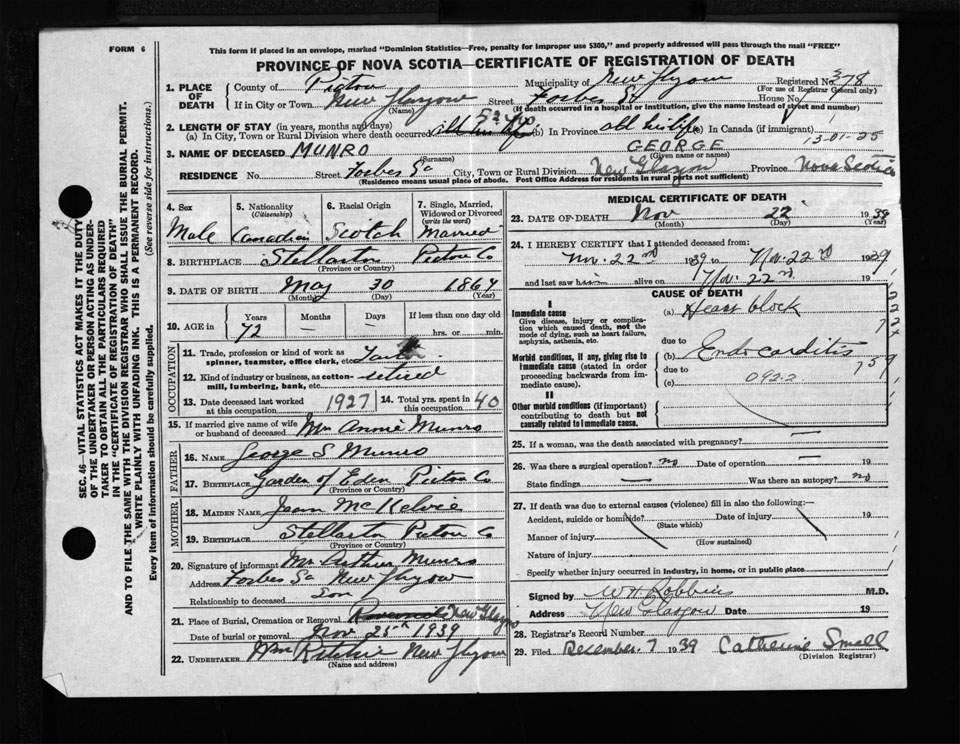 FORM 6
This form if placed in an envelope, marked "Dominion Statistics—Free, penalty for improper use $300," and properly addressed will pass through the mail "FREE"
PROVINCE OF NOVA SCOTIA—CERTIFICATE OF REGISTRATION OF DEATH
1. PLACE OF DEATH
County of Pictou Municipality of New Glasgow Registered No. 378
(For use of Registrar General only)
If in City or Town New Glasgow Street Forbes St House No.
(Name) (If death occurred in a hospital or Institution, give the name instead of street and number)
2. LENGTH OF STAY (in years, months and days)
(a) In City, Town or Rural Division where death occurred (b) In Province all his life (c) In Canada (if immigrant)
13-01-25
3. NAME OF DECEASED MUNRO GEORGE
(Surname) (Given name or names)
RESIDENCE No. Street Forbes St City, Town or Rural Division New Glasgow Province Nova Scotia
(Residence means usual place of abode. Post Office Address for residents in rural parts not sufficient)
4. Sex
Male
5. Nationality
(Citizenship)
Canadian
6. Racial Origin
Scotch
7. Single, Married, Widowed or Divorced
(write the word)
Married
8. BIRTHPLACE Stellarton Pictou Co
(Province or Country)
9. DATE OF BIRTH May 30 1867
(Month) (Day) (Year)
10. AGE in Years Months Days If less than one day old
72 — — hrs. or min.
OCCUPATION
11. Trade, profession or kind of work as spinner, teamster, office clerk, etc.
12. Kind of industry or business, as cotton-mill, lumbering, bank, etc. retired
13. Date deceased last worked at this occupation 1927
14. Total yrs. spent in this occupation 40
15. If married give name of wife or husband of deceased Mrs Annie Munro
FATHER
16. NAME George S Munro
17. BIRTHPLACE Garden of Eden Pictou Co
(Province or Country)
MOTHER
18. MAIDEN NAME Jean McKelvie
19. BIRTHPLACE Stellarton Pictou Co
(Province or Country)
20. Signature of informant Mr Arthur Munro
Address Forbes St New Glasgow
Relationship to deceased Son
21. Place of Burial, Cremation or Removal New Glasgow
Date of burial or removal Nov 25th 1939
22. UNDERTAKER Wm Ritchie New Glasgow
(Name and address)
MEDICAL CERTIFICATE OF DEATH
23. DATE OF DEATH Nov 22 1939
(Month) (Day)
24. I HEREBY CERTIFY that I attended deceased from:
Nov. 22nd 1939 to Nov. 22nd 1939
and last saw him alive on Nov. 22nd 19
CAUSE OF DEATH
I
Immediate cause
Give disease, injury or complication which caused death, not the mode of dying, such as heart failure, asphyxia, asthenia, etc.
(a) Heart block
due to
Morbid conditions, if any, giving rise to immediate cause (stated in order proceeding backwards from immediate cause).
(b) Endocarditis
due to
(c) 092-2
II
Other morbid conditions (if important) contributing to death but not causally related to immediate cause.
25. If a woman, was the death associated with pregnancy? —
26. Was there a surgical operation? no Date of operation — 19
State findings — Was there an autopsy? no
27. If death was due to external causes (violence) fill in also the following:—
Accident, suicide or homicide? Date of injury 19
(State which)
Manner of injury
(How sustained)
Nature of injury
Specify whether injury occurred in industry, in home, or in public place
Signed by W H Robbins M.D.
Address New Glasgow Date 19
28. Registrar's Record Number
29. Filed December 7 1939 Catherine Small
(Division Registrar)
SEC. 46—VITAL STATISTICS ACT MAKES IT THE DUTY
OF THE UNDERTAKER OR PERSON ACTING AS UNDER-
TAKER TO OBTAIN ALL THE PARTICULARS REQUIRED
IN THE "CERTIFICATE OF REGISTRATION OF DEATH"
AND TO FILE THE SAME WITH THE DIVISION REGISTRAR WHO SHALL ISSUE THE BURIAL PERMIT.
WRITE PLAINLY WITH UNFADING INK. THIS IS A PERMANENT RECORD.
Every item of information should be carefully supplied. (See reverse side for instructions.)